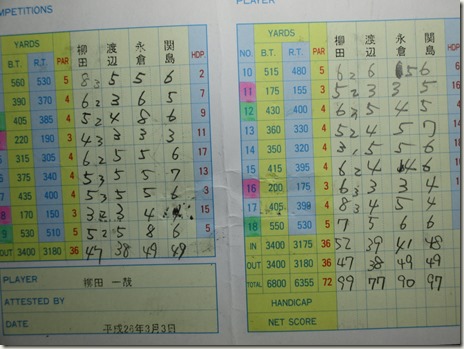 OMPETITIONS
YARDS PAR 柳田 渡辺 永倉 関島 HDP.
B.T. R.T.
560 530 5 83 5 5 6 2
390 370 4 62 3 6 5 7
405 385 4 52 4 8 6 9
220 190 3 43 3 3 3 11
315 305 4 62 5 5 6 17
375 340 4 53 5 5 7 13
435 400 4 53 5 5 6 3
170 150 3 32 3 4 15
9 530 510 5 52 5 8 6 5
OUT 3400 3180 36 47 38 49 49
PLAYER 柳田 一哉
ATTESTED BY
DATE 平成26年3月3日
PLAYER
YARDS PAR 柳田 渡辺 永倉 関島
NO. B.T. R.T.
10 515 480 5 62 6 5 6
11 175 155 3 52 3 3 5
12 430 400 4 63 5 4 5
13 360 330 4 52 4 5 7
14 360 350 4 5 5 6
15 415 395 4 62 4 4 6
16 200 175 3 63 3 3 4
17 405 4 83 4 5 4
18 550 5 7 5 6 6
IN 3400 3175 36 52 39 41 48
OUT 3400 3180 36 47 38 49 49
TOTAL 6800 6355 72 99 77 90 97
HANDICAP
NET SCORE